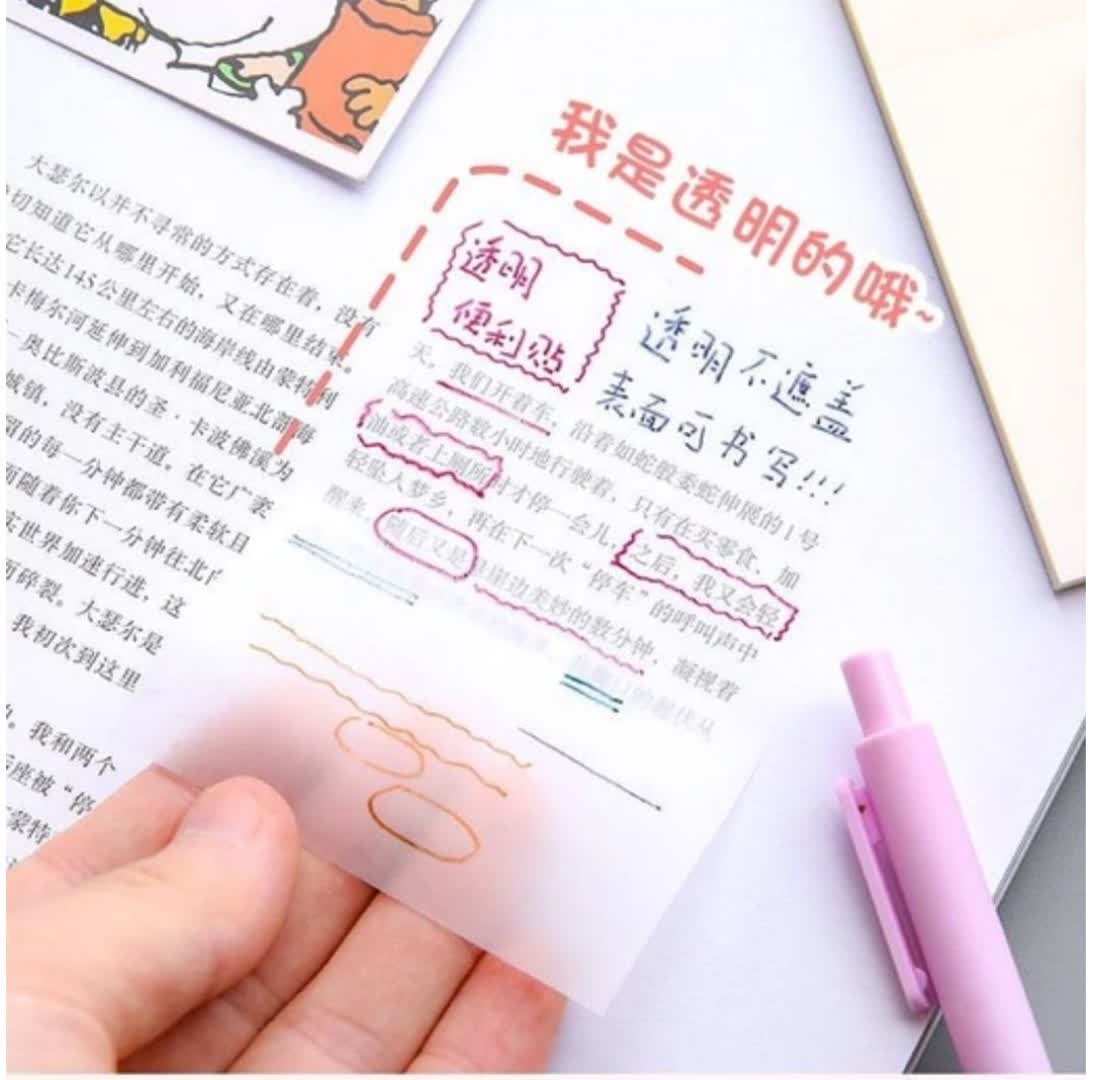 我是透明的哦~
透明
便利贴
透明不遮盖
表面可书写!!!
大瑟尔以并不寻常的方式存在着，没有
切知道它从哪里开始，又在哪里结束。
它长达145公里左右的海岸线由蒙特利
卡梅尔河延伸到加利福尼亚北部海
奥比斯波县的圣·卡波佛溪为
城镇，没有主干道。在它广袤
的每一分钟都带有柔软且
而随着你下一分钟往北
世界加速行进，这
而碎裂。大瑟尔是
我初次到这里
我和两个
座被“停
蒙特
天，我们开着车，沿着如蛇般委蛇伸展的1号
高速公路数小时地行驶着，只有在买零食、加
油或者上厕所时才停一会儿，之后，我又会轻
轻坠入梦乡，再在下一次“停车”的呼叫声中
醒来，随后又是崖边美妙的数分钟，凝视着